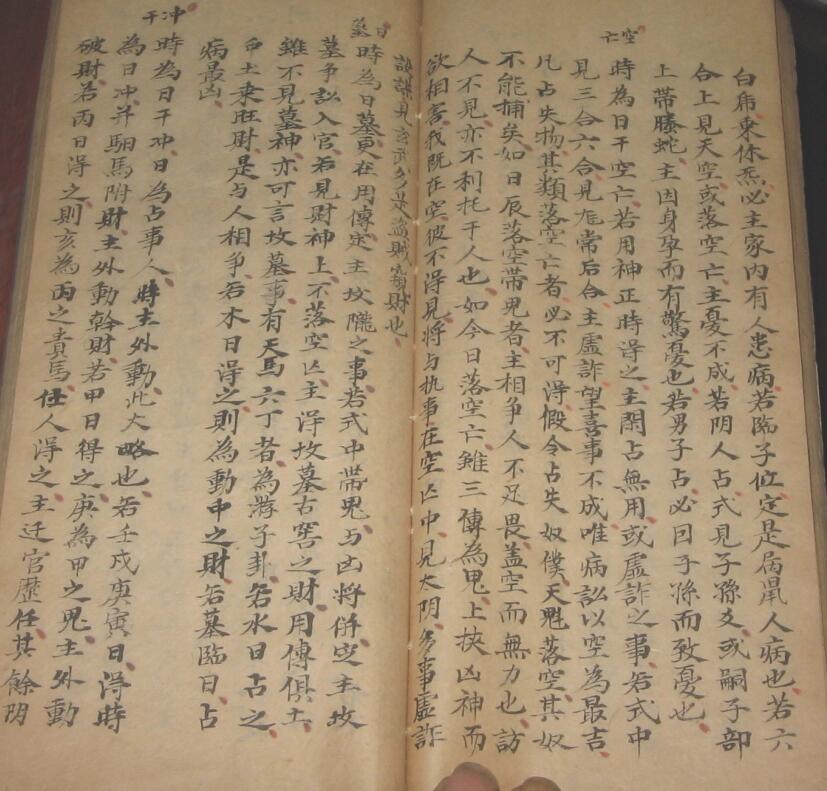 白虎乘休炁必主家内有人患病若臨子位定是屬鼠人病也若六
合上見天空或落空亡主憂不成若阴人占式見子孫爻或嗣子部
上帶螣蛇主因身孕而有驚憂也若男子占必因子孫而致憂也
空亡
時為日干空亡若用神正時淂之主閑占無用或虛詐之事若式中
見三合六合見龙常后合主虛詐望喜事不成唯病訟以空為最吉
凡占失物其類落空亡者必不可淂假令占失奴僕天魁落空其奴
不能捕矣如日辰落空帶鬼者主相爭人不足畏盖空而無力也訪
人不見亦不利托干人也如今日落空亡雖三傳為鬼上挟凶神而
欲相害我既在空彼不淂見将与执事在空亡中見太阴多事虛詐
見玄武多失盗賊窃財也
日墓
時為日墓更在用傳定主坟隴之事若式中帶鬼与凶将併定主坟
墓争訟入官若見財神上不落空亡主淂坟墓古窖之財用傳俱土
雖不見墓神亦可言坟墓事有天馬六丁者為游子卦若水日占之
中土乘旺財是与人相争若木日淂之則為動中之財若墓臨日占
病最凶
冲干
時為日干冲日為占事人時主外動此大略也若壬戌庚寅日淂時
為日冲并駟馬附財主外動幹財若甲日得之庚為甲之鬼主外動
破財若丙日淂之則亥為丙之貴馬任人淂之主迁官歷任其餘阴